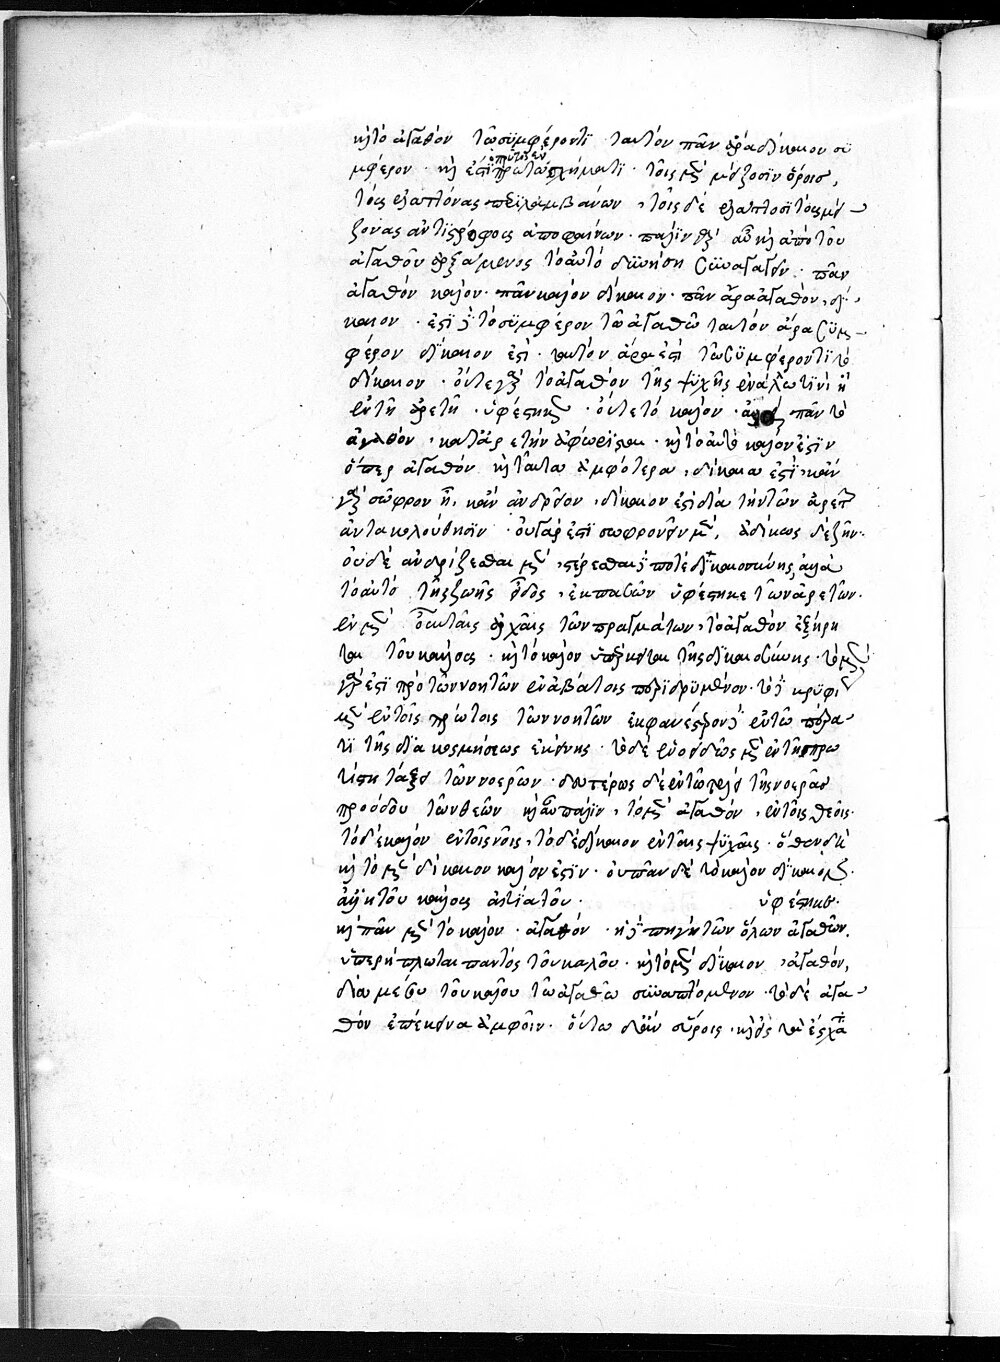 καὶ τὸ ἀγαθὸν τῶ συμφέροντι ταυτόν πᾶν ἄρα δίκαιον συ
μφέρον · καὶ ἐπὶ πρώτω σχήματι · τοῖς μὲν μείζοσιν ὅροις,
τοὺς ἐλάττονας περιλαμβάνων, τοῖς δὲ ἐλάττοσι τοὺς μεί
ζονας ἀντιστρόφους ἀποφαίνων · πάλιν δὲ αὖ καὶ ἀπὸ τοῦ
ἀγαθοῦ ἀρξάμενος τὸ αὐτὸ δυνήση συναγαγεῖν · πᾶν
ἀγαθὸν καλόν · πᾶν καλὸν δίκαιον · πᾶν ἄρα ἀγαθὸν, δί
καιον · ἔστι δὲ τὸ συμφέρον τῶ ἀγαθῶ ταυτόν ἄρα συμ
φέρον δίκαιον ἐστὶ · ταυτὸν ἄρα ἐστὶ τῶ συμφέροντι τὸ
δίκαιον · οὔτε γὰρ τὸ ἀγαθὸν τῆς ψυχῆς ἐν ἄλλω τινὶ ἢ
ἐν τῆ ἀρετῆ · ὑφέστηκεν · οὔτε τὸ καλόν · πᾶν τὸ
ἀγαθὸν · κατ' ἀρετὴν ἀφώρισται · καὶ τὸ αὐτὸ καλόν ἐστιν
ὅπερ ἀγαθὸν καὶ ταῦτα ἀμφότερα, δίκαια ἐστὶ · κἂν
γὰρ σῶφρον ἦ, κἂν ἀνδρεῖον, δίκαιον ἐστὶ διὰ τὴν τῶν ἀρετῶν
ἀντακολούθησιν · οὐ γάρ ἐστι σωφρονεῖν μὲν, ἀδίκως δὲ ζῆν ·
οὐδὲ ἀνδρίζεσθαι μὲν, στέρεσθαι δὲ ποτὲ δικαιοσύνης, ἀλλὰ
τὸ αὐτὸ τῆς ζωῆς εἶδος, ἐκ πασῶν ὑφέστηκε τῶν ἀρετῶν ·
ἐν μὲν οὖν ταῖς ἀρχαῖς τῶν πραγμάτων, τὸ ἀγαθὸν ἐξήρη
ται τοῦ κάλλους · καὶ τὸ καλὸν ὑπέρκειται τῆς δικαιοσύνης · τὸ μὲν
γάρ ἐστι πρὸ τῶν νοητῶν ἐν ἀβάτοις περιιδρυμένον · τὸ δὲ κρυφί
μὲν ἐν τοῖς πρώτοις τῶν νοητῶν ἐκφανέστερον δὲ ἐν τῶ πέρα
τι τῆς διακοσμήσεως ἐκείνης · τὸ δὲ ἑνοειδῶς μὲν ἐν τῆ πρω
τίστη τάξει τῶν νοερῶν · δευτέρως δὲ ἐν τῶ τῆς νοερᾶς
προόδου τῶν θεῶν καὶ αὖ πάλιν, τὸ μὲν ἀγαθὸν, ἐν τοῖς θεοῖς ·
τὸ δὲ καλὸν ἐν τοῖς νοῖς, τὸ δὲ δίκαιον ἐν ταῖς ψυχαῖς · ὅθεν δὴ
καὶ τὸ μὲν δίκαιον καλόν ἐστιν · οὐ πᾶν δὲ τὸ καλὸν δίκαιον ·
ἀλλ' ἐκ τοῦ κάλλους αἰτίας τοῦ · ὑφέστηκε ·
καὶ πᾶν μὲν τὸ καλὸν · ἀγαθόν · ἡ δὲ πηγὴ τῶν ὅλων ἀγαθῶν,
ὑπερήπλωται παντὸς τοῦ καλοῦ · καὶ τὸ μὲν δίκαιον, ἀγαθόν,
διὰ μέσου τοῦ καλοῦ τῶ ἀγαθῶ συναπτόμενον · τὸ δὲ ἀγα
θὸν ἐπέκεινα ἀμφοῖν · οὕτω δ' ἂν εὕροις · καὶ εἰς τὰ ἔσχατα